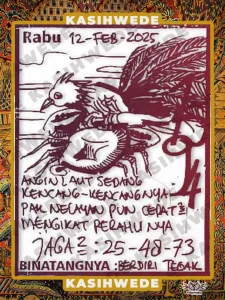 KASIHWEDE
Rabu 12-FEB-2025
4
ANGIN LAUT SEDANG
KENCANG-KENCANGNYA
PAK NELAYAN PUN CEPAT²
MENGIKAT PERAHU NYA
JAGA² : 25-48-73
BINATANGNYA : BERDIRI TEGAK
KASIHWEDE